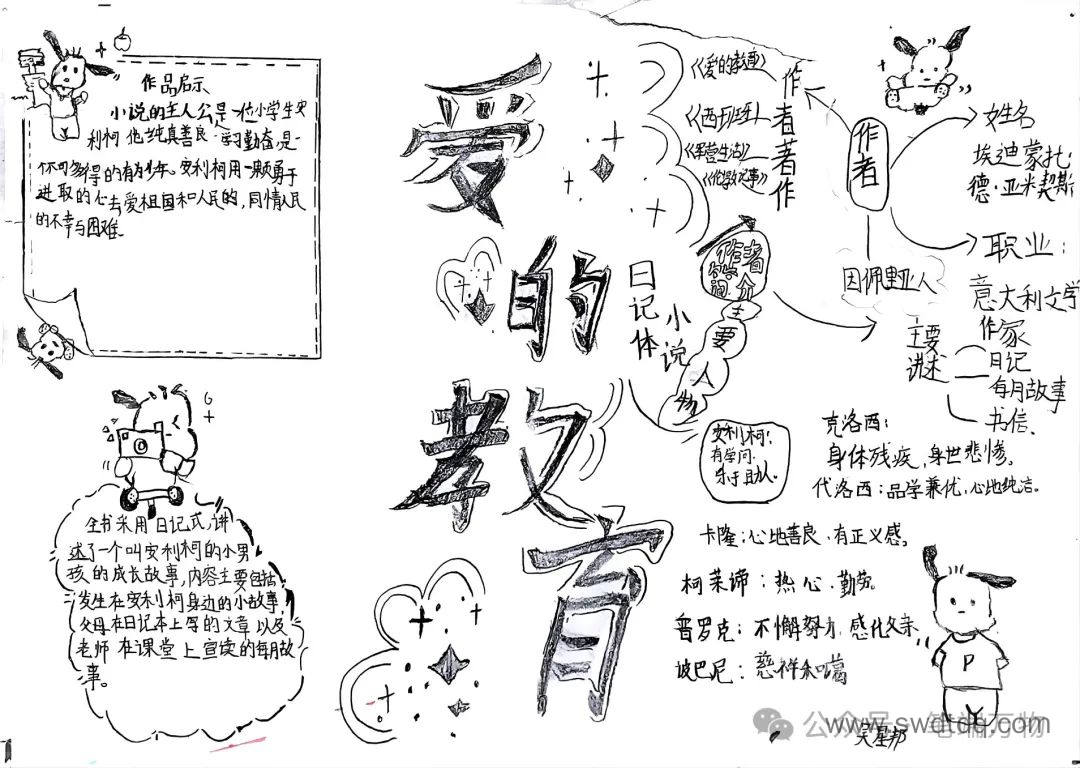 作品启示
小说的主人公是一位小学生安
利柯他纯真善良学习勤奋,是一
不可多得的有为少年。安利柯用一颗勇于
进取的心去爱祖国和人民的,同情人民
的不幸与困难
爱的教育
日记体
小说
全书采用日记式,讲
述了一个叫安利柯的小男
孩的成长故事,内容主要包括:
发生在安利柯身边的小故事,
父母在日记本上写的文章以及
老师在课堂上宣读的每月故
事。
作者著作
《爱的教育》
《西班牙》
《军营生活》
作者
姓名
埃迪蒙托·
德·亚米契斯
职业:
意大利文学
作家
因佩里亚人
作者
简介
主要讲述
日记
每月故事
书信
主要人物
安利柯:
有学问
乐于助人
克洛西:
身体残疾,身世悲惨。
代洛西:品学兼优,心地纯洁。
卡隆:心地善良、有正义感。
柯莱谛:热心、勤劳
普罗克:不懈努力,感化父亲
波巴尼:慈祥和蔼
P
公众号·笔端万物
www.swdtdq.com